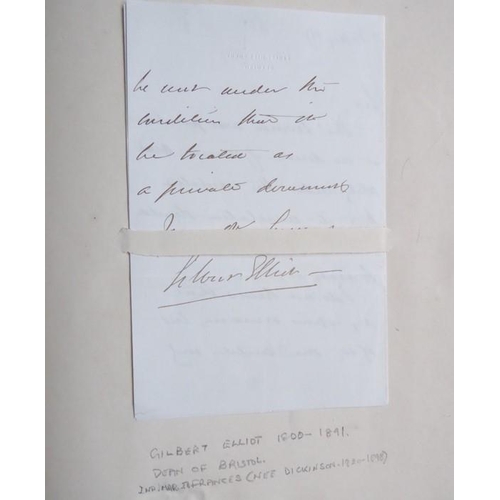 be not under the
condition that it
be treated as
a private document
Gilbert Elliot
GILBERT ELLIOT 1800-1891.
DEAN OF BRISTOL
FRANCES (NEE DICKINSON. 1820-1898)